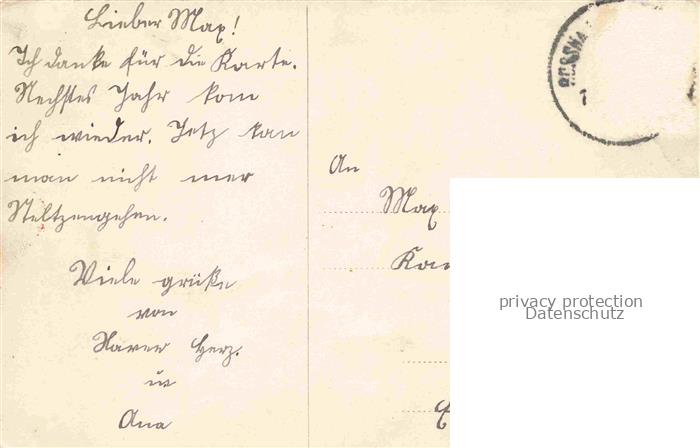 Lieber Max!
Ich danke für die Karte.
Nechstes Jahr kom
ich wieder. Jetz kan
man nicht mer
Steltzengehen.
Viele grüße
von
Xaver Herz.
u
Ana
An
Max
privacy protection
Datenschutz